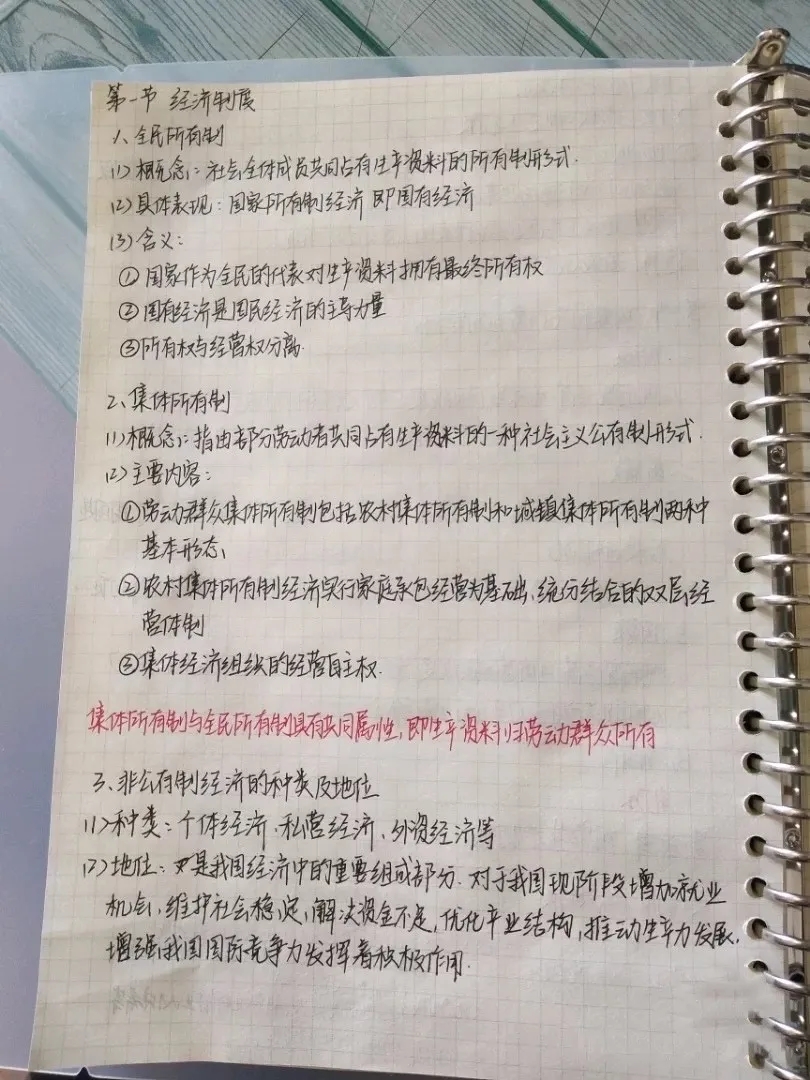 第一节 经济制度
1、全民所有制
(1)概念：社会全体成员共同占有生产资料的所有制形式.
(2)具体表现：国家所有制经济 即国有经济
(3)含义：
①国家作为全民的代表对生产资料拥有最终所有权
②国有经济是国民经济的主导力量
③所有权与经营权分离.
2、集体所有制
(1)概念：指由部分劳动者共同占有生产资料的一种社会主义公有制形式.
(2)主要内容：
①劳动群众集体所有制包括农村集体所有制和城镇集体所有制两种
基本形态、
②农村集体所有制经济实行家庭承包经营为基础、统分结合的双层经
营体制
③集体经济组织的经营自主权.
集体所有制与全民所有制具有共同属性，即生产资料归劳动群众所有
3、非公有制经济的种类及地位
(1)种类：个体经济、私营经济、外资经济等
(2)地位：是我国经济中的重要组成部分. 对于我国现阶段增加就业
机会，维护社会稳定，解决资金不足，优化产业结构，推动生产力发展，
增强我国国际竞争力发挥着积极作用.